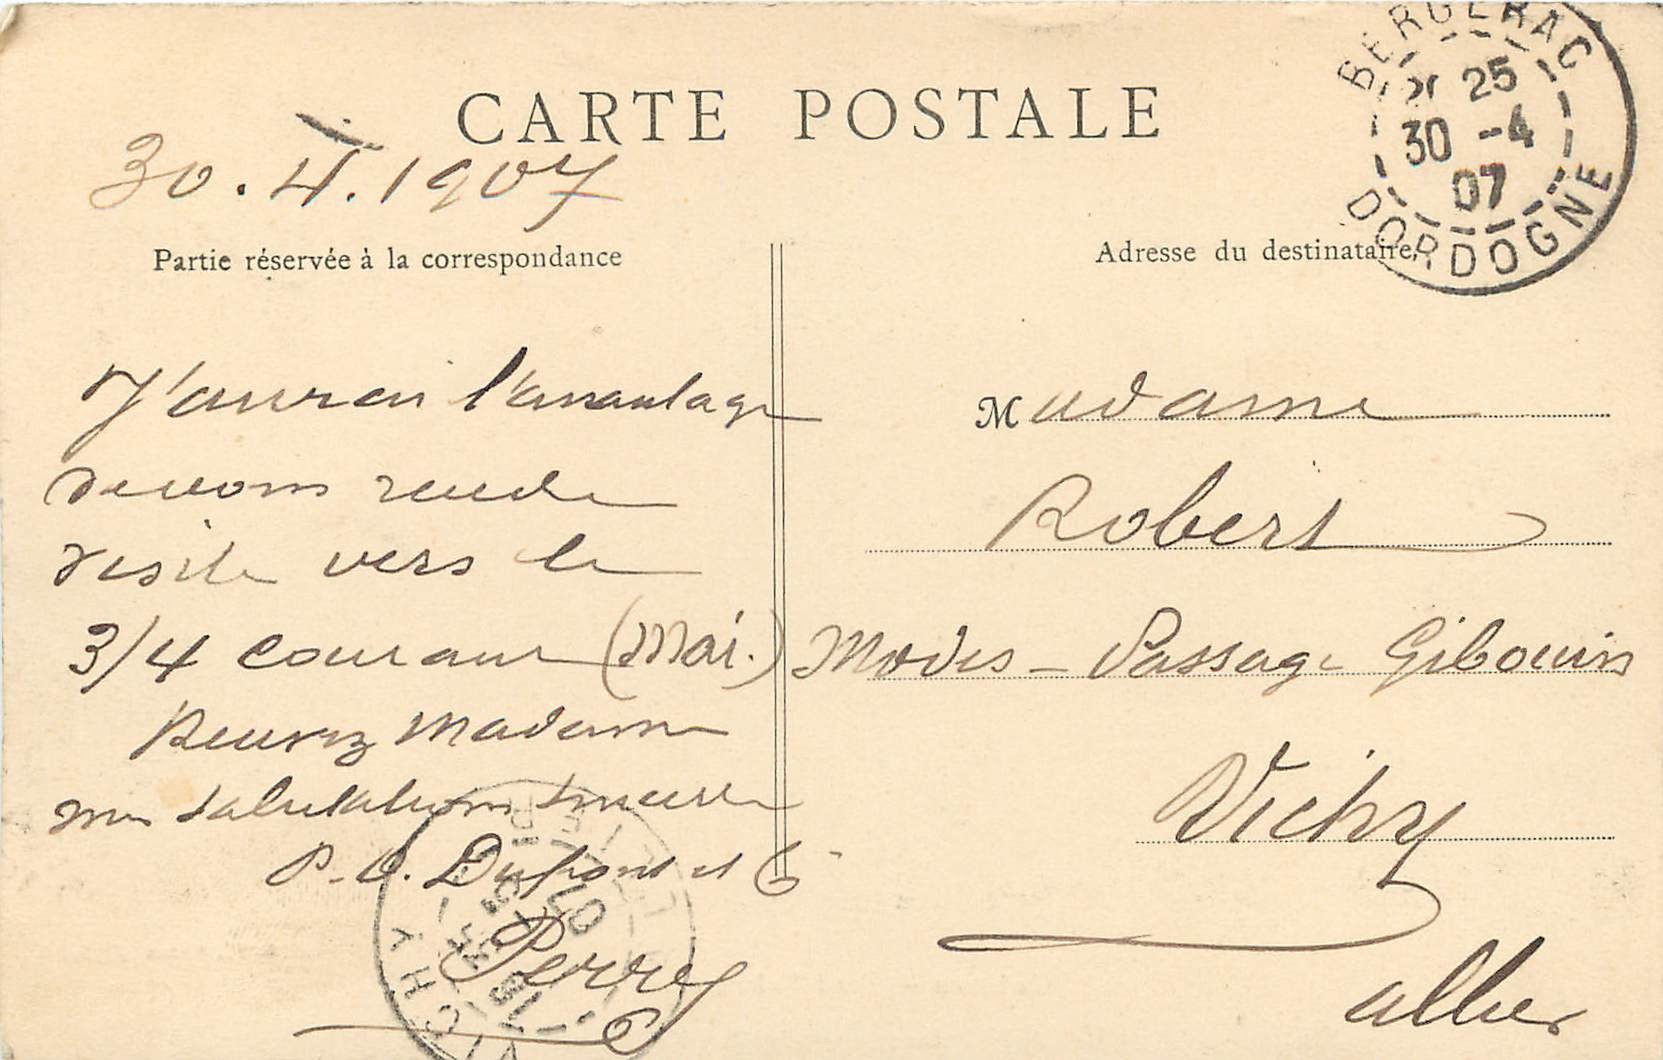 CARTE POSTALE
30.4.1907
Partie réservée à la correspondance
J'aurai l'avantage
de vous rendre
visite vers le
3/4 courant (Mai.)
Recevez Madame
mes salutations sincères
P.O. Dupont et Cie
Perrey
Adresse du destinataire,
Madame
Robert
Modes - Passage Giboin
Vichy
Allier
BERGERAC
25
30 -4
07
DORDOGNE
07
VICHY